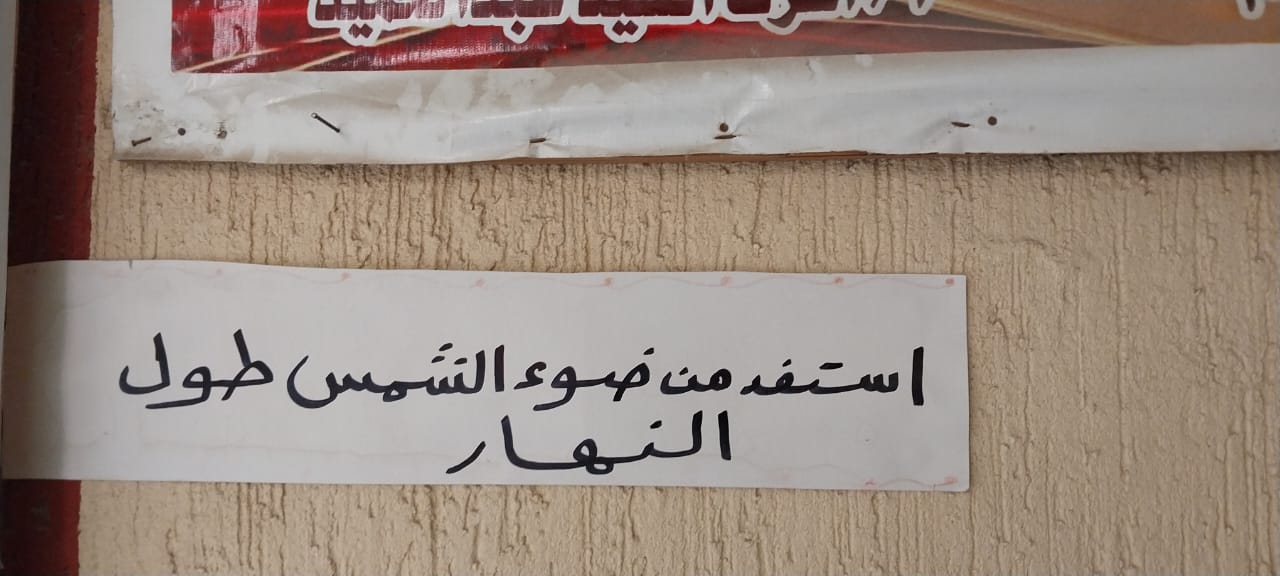 استفد من ضوء الشمس طول
النهار